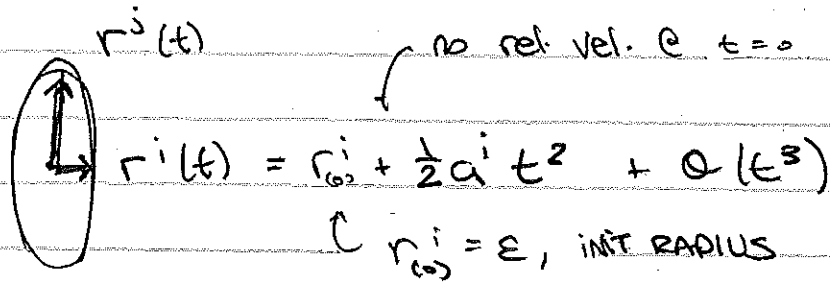 r^j(t)
no rel. vel. @ t=0
r^i(t) = r^i_(0) + ½ a^i t² + O(t³)
r^i_(0) = ε, INIT RADIUS